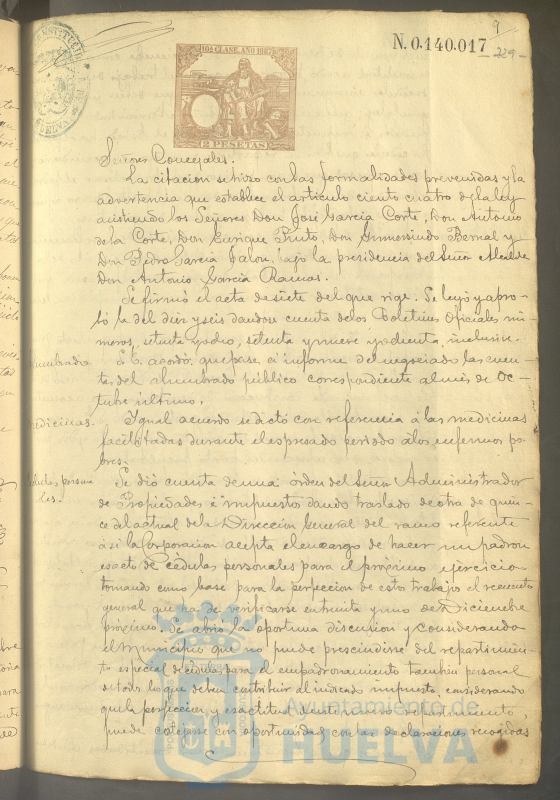 9
N. 0.140.017
229
10ª CLASE. AÑO 1887
2 PESETAS
Señores Concejales.
La citacion se hizo con las formalidades prevenidas y la
advertencia que establece el articulo ciento cuatro de la ley
asistiendo los Señores Don José Garcia Corte, Don Antonio
de la Corte, Don Enrique Pinto, Don Gumersindo Bernal y
Don Pedro Garcia Jalon, bajo la presidencia del Señor Alcalde
Don Antonio Garcia Ramos.
Se firmó el acta de siete del que rige. Se leyó y apro-
bó la del diez y seis dandose cuenta de los Boletines Oficiales nú-
meros, setenta y ocho, setenta y nueve y ochenta, inclusive.
Alumbrado
S. S. acordó que pase á informe del negociado las cuen-
tas del alumbrado público correspondiente al mes de Oc-
tubre último.
Medicinas.
Igual acuerdo se dictó con referencia á las medicinas
facilitadas durante el espresado periodo á los enfermos po-
bres.
Cédulas persona
les.
Se dió cuenta de una órden del Señor Administrador
de Propiedades é impuestos dando traslado de otra de quin-
ce del actual de la Direccion General del ramo referente
á si la Corporacion acepta el encargo de hacer un padron
esacto de Cédulas personales para el próximo ejercicio
tomando como base para la perfeccion de esto trabajo el recuento
general que ha de verificarse en treinta y uno de Diciembre
próximo. Se abrió la oportuna discusion y considerando
el Municipio que no puede prescindirse del repartimien-
to especial de cédulas para el empadronamiento tambien personal
de todos los que deben contribuir al indicado impuesto, considerando
que la perfeccion y esactitud de este nuevo repartimiento,
puede cotejarse con oportunidad con las declaraciones recogidas
Ayuntamiento de
HUELVA